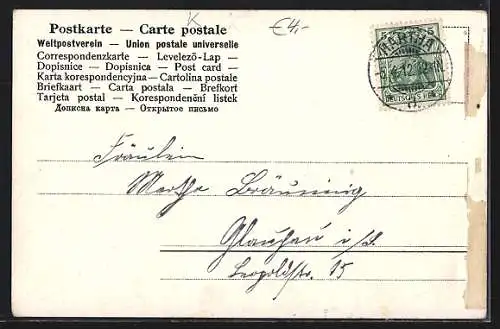 K
€4,-
Postkarte — Carte postale
Weltpostverein — Union postale universelle
Correspondenzkarte — Levelező-Lap —
Dopisnice — Dopisnica — Post card —
Karta korespondencyjna — Cartolina postale
Briefkaart — Carta postala — Brefkort
Tarjeta postal — Korespondenční listek
Дописна карта — Открытое письмо
5 5
DEUTSCHES REICH
Fräulein
Martha Bräuning
Glauchau i/S.
Leopoldstr. 15